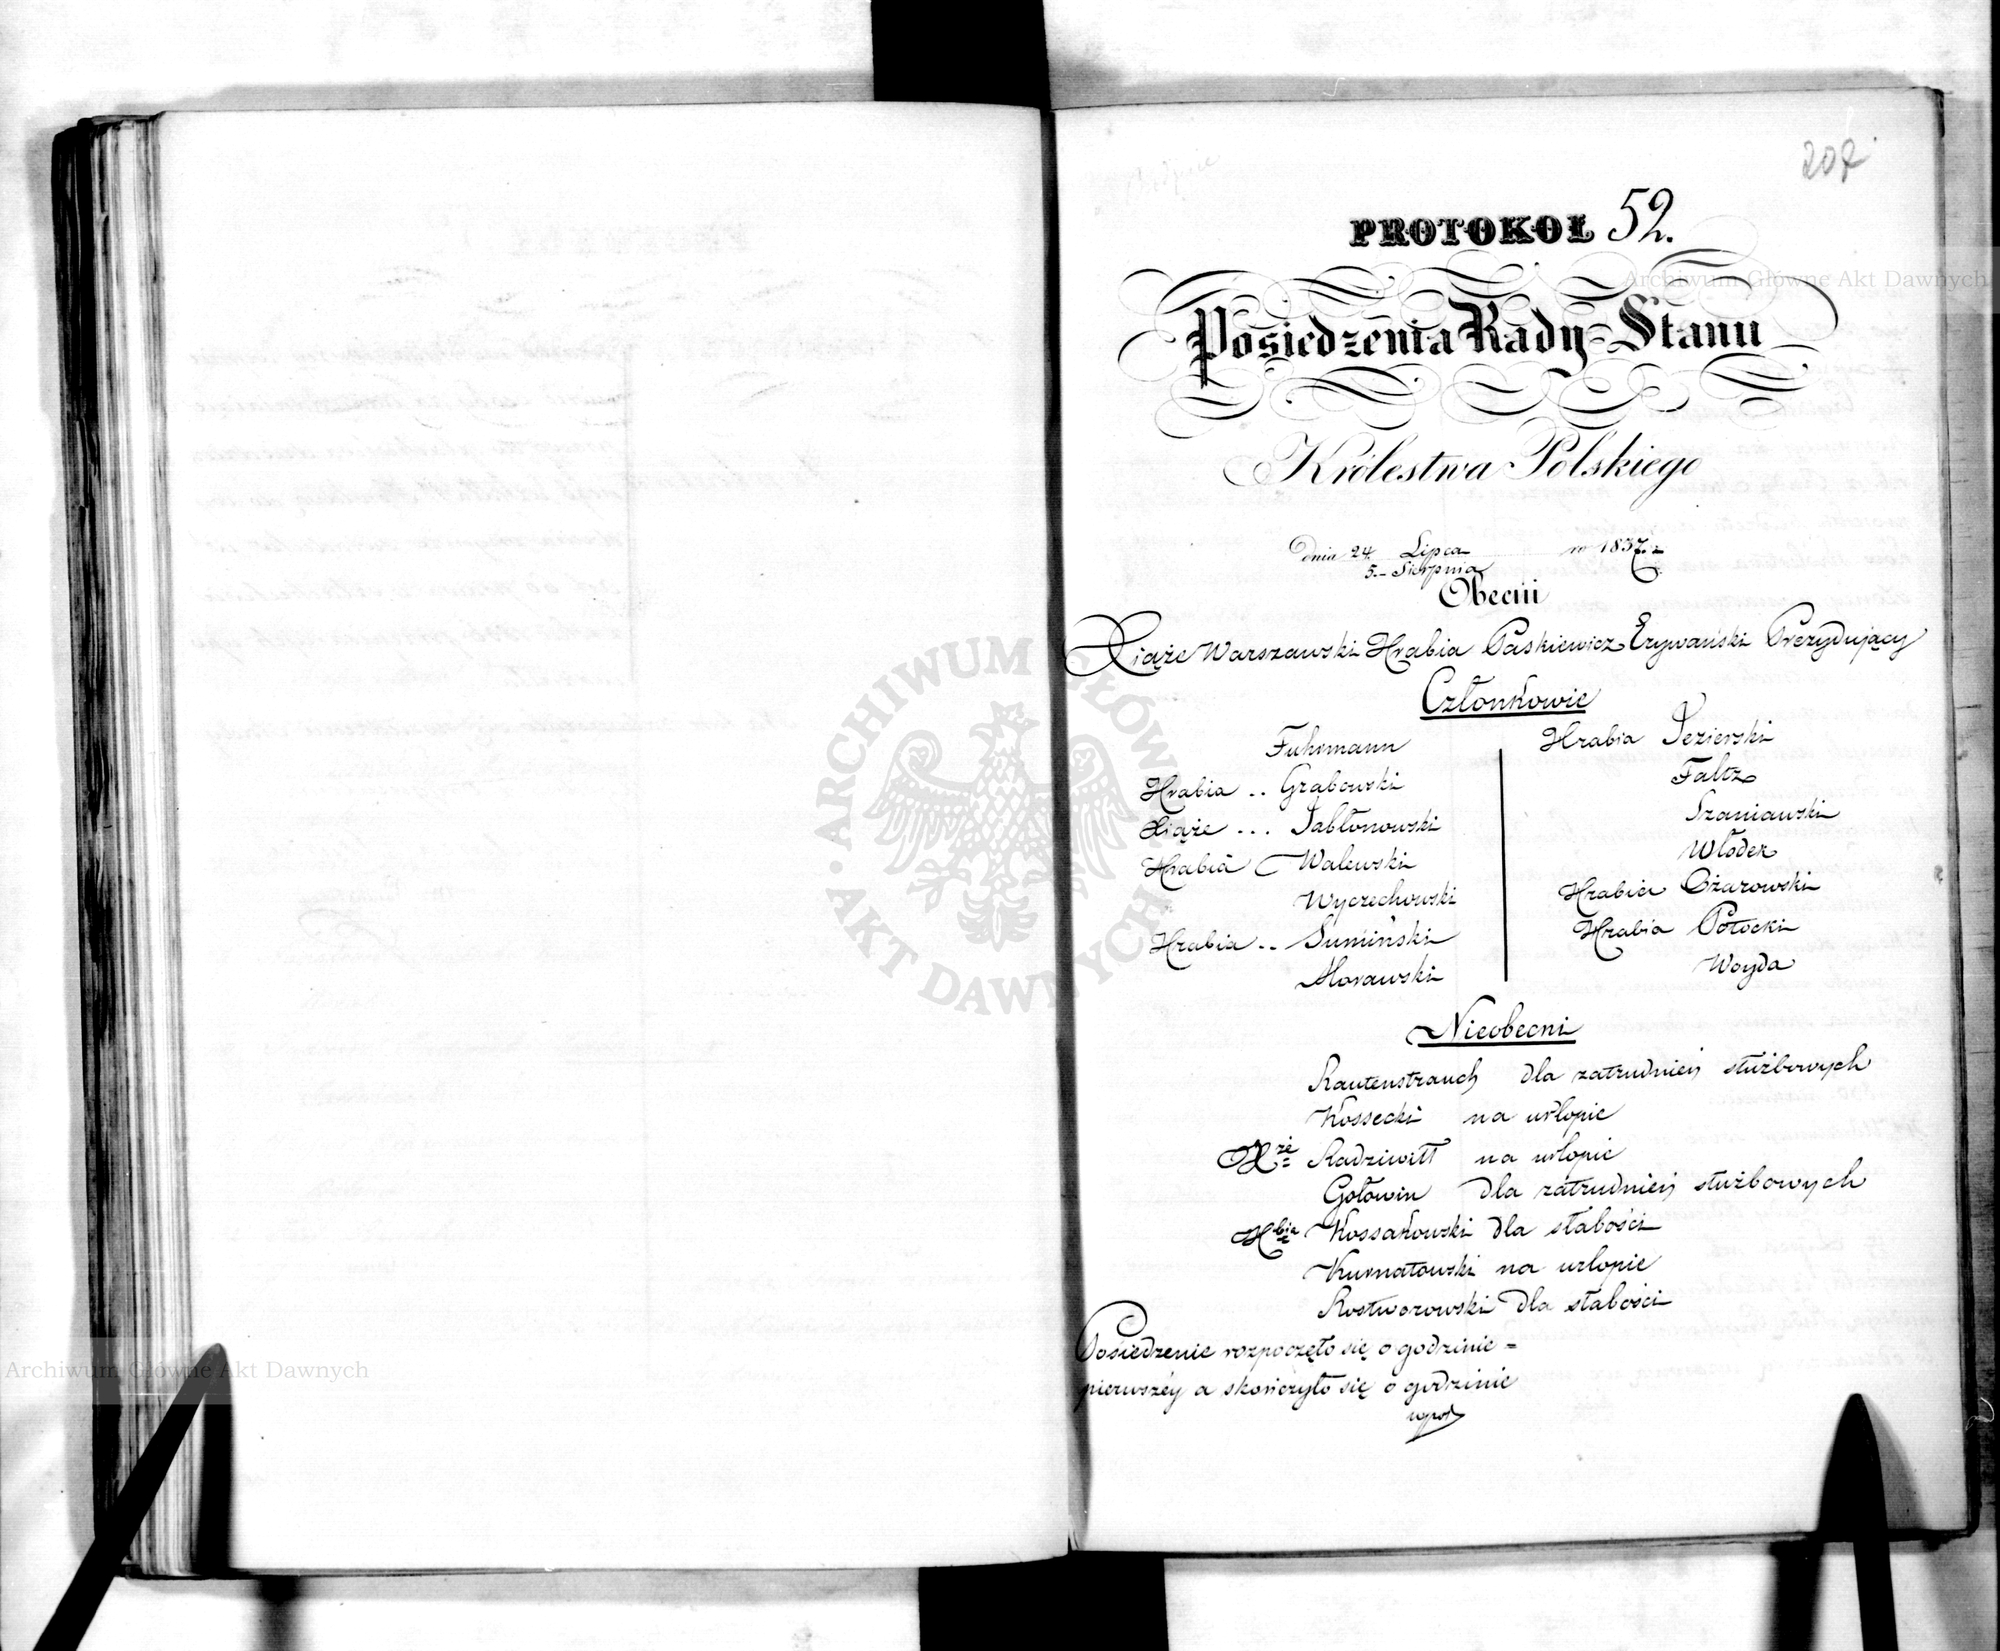 PROTOKÓŁ 52.
Posiedzenia Rady Stanu
Królestwa Polskiego
Dnia 24. Lipca
5. Sierpnia
w 1837. r.
Obecni
Xiąże Warszawski Hrabia Paskiewicz Erywański Prezydujący
Członkowie
Fuhrmann
Hrabia .. Grabowski
Xiąże ... Jabłonowski
Hrabia Walewski
Wyczechowski
Hrabia .. Sumiński
Morawski
Hrabia Jezierski
Faltz
Szaniawski
Włodek
Hrabia Ożarowski
Hrabia Potocki
Woyda
Nieobecni
Rautenstrauch dla zatrudnień służbowych
Kossecki na urlopie
Xże Radziwiłł na urlopie
Gołowin dla zatrudnień służbowych
Hbia Kossakowski dla słabości
Kurnatowski na urlopie
Rostworowski dla słabości
Posiedzenie rozpoczęło się o godzinie =
pierwszéy a skończyło się o godzinie
Archiwum Główne Akt Dawnych
Archiwum Główne Akt Dawnych
· ARCHIWUM GŁÓWNE · AKT DAWNYCH